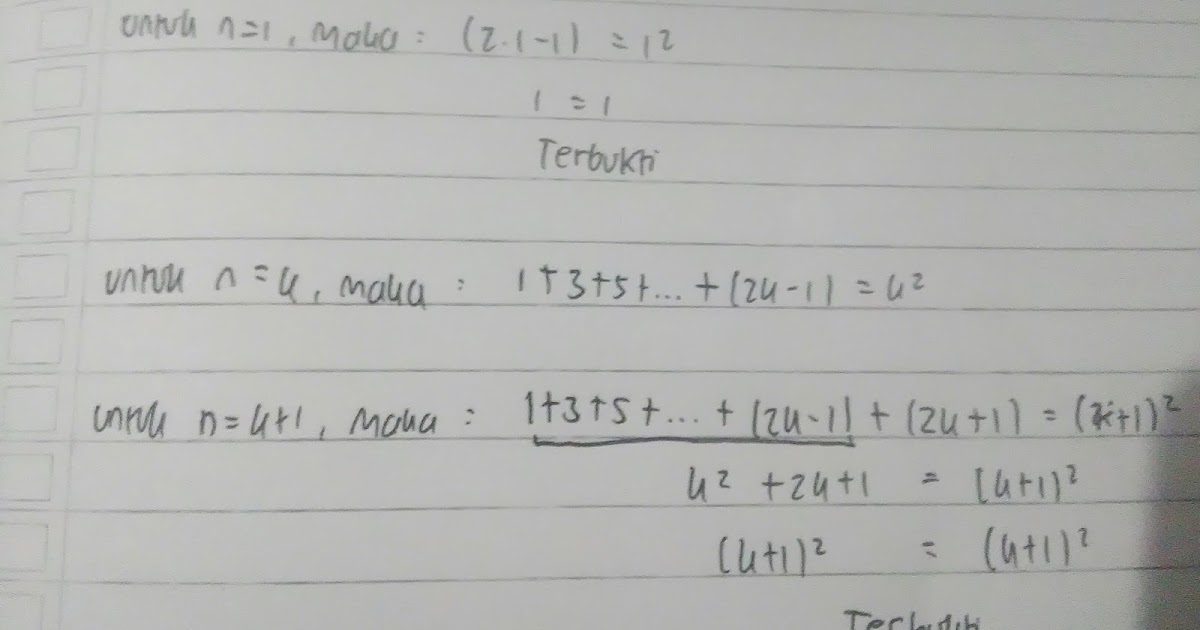 untuk n=1, maka : (2.1-1) = 1²
1 = 1
Terbukti
untuk n=k, maka : 1+3+5+... + (2k-1) = k²
untuk n=k+1, maka : 1+3+5+... + (2k-1) + (2k+1) = (k+1)²
k² + 2k+1 = (k+1)²
(k+1)² = (k+1)²
Terbukti